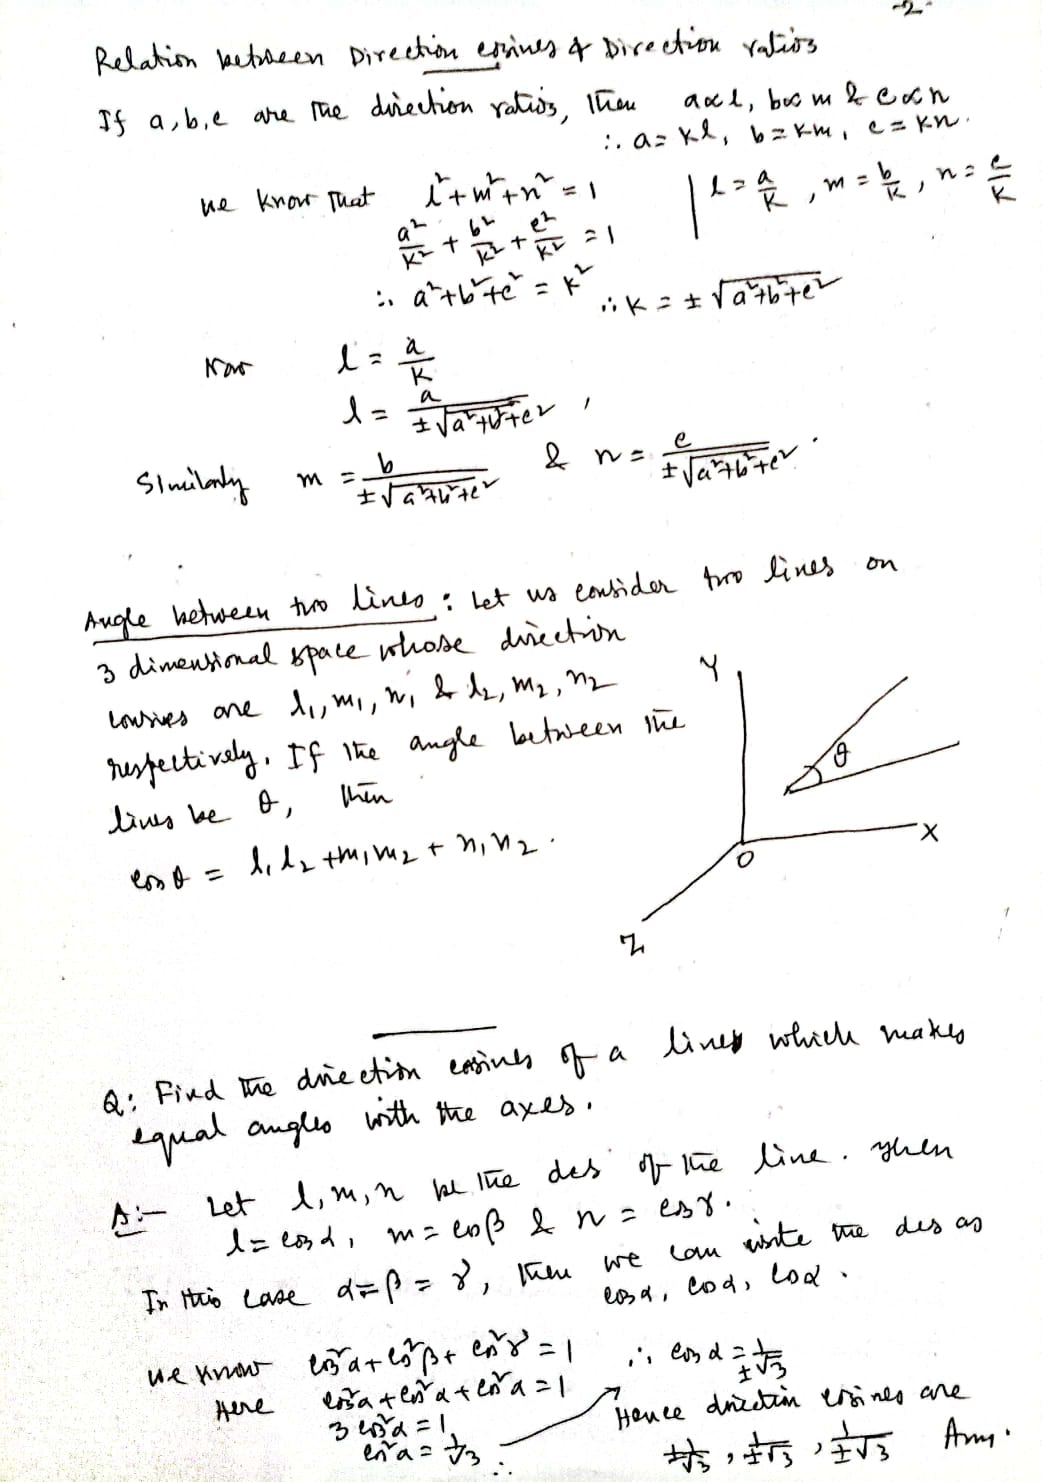 -2-
Relation between Direction cosines & Direction ratios
If a, b, c are the direction ratios, then a∝l, b∝m & c∝n
∴ a = Kl, b = Km, c = Kn.
We know that l²+m²+n² = 1 | l = a/K, m = b/K, n = c/K
a²/K² + b²/K² + c²/K² = 1
∴ a²+b²+c² = K² ∴ K = ± √(a²+b²+c²)
Now l = a/K
l = a/±√(a²+b²+c²),
Similarly m = b/±√(a²+b²+c²) & n = c/±√(a²+b²+c²).
Angle between two lines: Let us consider two lines on
3 dimensional space whose direction
cosines are l₁, m₁, n₁ & l₂, m₂, n₂
respectively. If the angle between the
lines be θ, then
cos θ = l₁l₂ + m₁m₂ + n₁n₂.
Y
θ
X
O
Z
Q: Find the direction cosines of a line which makes
equal angles with the axes.
A:- Let l, m, n be the dcs of the line. Then
l = cos α, m = cos β & n = cos γ.
In this case α = β = γ, then we can write the dcs as
cos α, cos α, cos α.
We know cos²α + cos²β + cos²γ = 1
Here cos²α + cos²α + cos²α = 1
3 cos²α = 1
cos²α = 1/3
∴ cos α = 1/±√3
Hence direction cosines are
1/±√3, 1/±√3, 1/±√3 Ans.